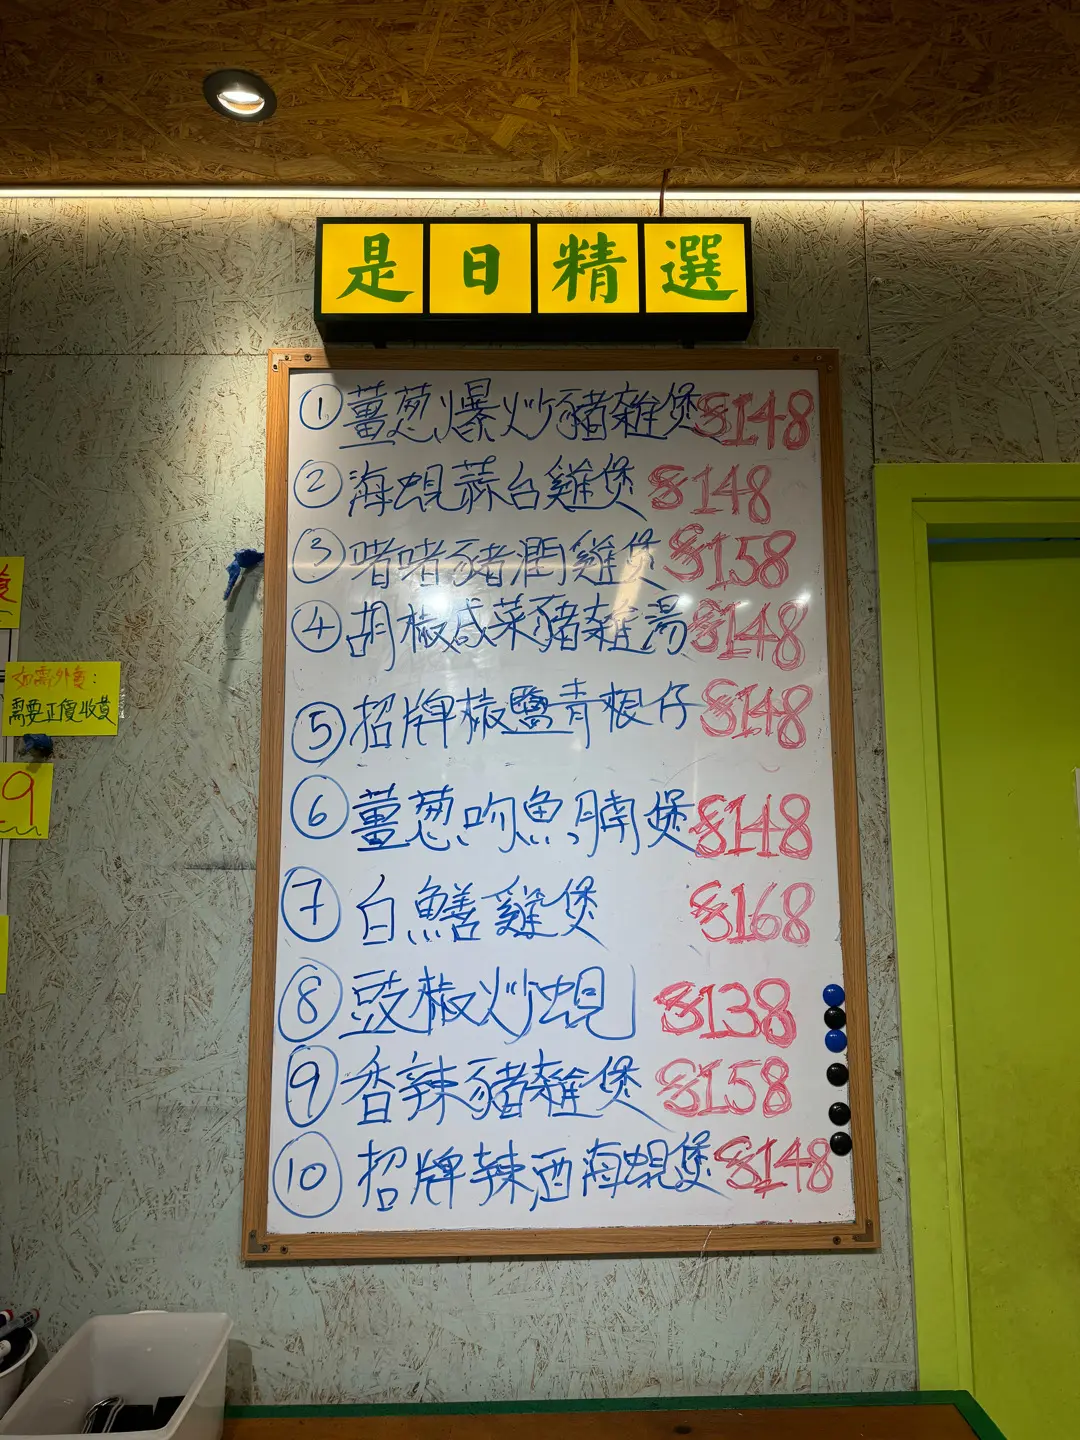 是日精選
① 薑葱爆炒豬雜煲 $148
② 海蜆蒜台雞煲 $148
③ 啫啫豬潤雞煲 $158
④ 胡椒咸菜豬雜湯 $148
⑤ 招牌椒鹽青根仔 $148
⑥ 薑葱吻魚腩煲 $148
⑦ 白鱔雞煲 $168
⑧ 豉椒炒蜆 $138
⑨ 香辣豬雜煲 $158
⑩ 招牌辣酒海蜆煲 $148
如需外賣:
需要正價收費
9